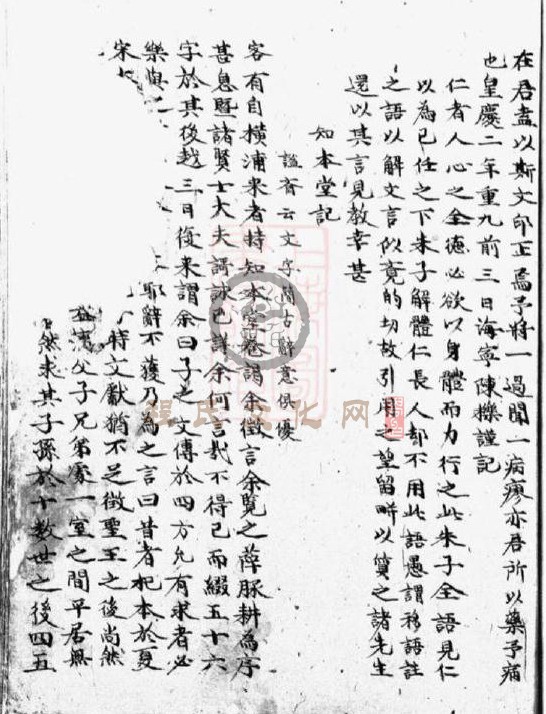 在君盍以斯文印正焉予將一過聞一病瘳亦吾所以藥予痛
也皇慶二年重九前三日海寧陳櫟謹記
仁者人心之全德必欲以身體而力行之此朱子全語見仁
以為己任之下朱子解體仁長人却不用此語愚謂移語註
之語以解文言似竟的切故引用之望留畔以質之諸先生
還以其言見教幸甚
知本堂記
謐齋云文字簡古辭意俱優
客有自橫浦來者持知本堂卷謁余徵言余覽之薛耕為序
甚息暨諸賢士大夫謌詠已詳余何言哉不得已而綴五十六
字於其後越三日復來謂余曰子之文傳於四方允有求者必
樂與之
耶辭不獲乃為之言曰昔者杞本於夏
宋 文獻猶不足徵聖王之後尚然
父子兄弟家一室之間平居無
然求其子孫於十數世之後四五
程氏文化网